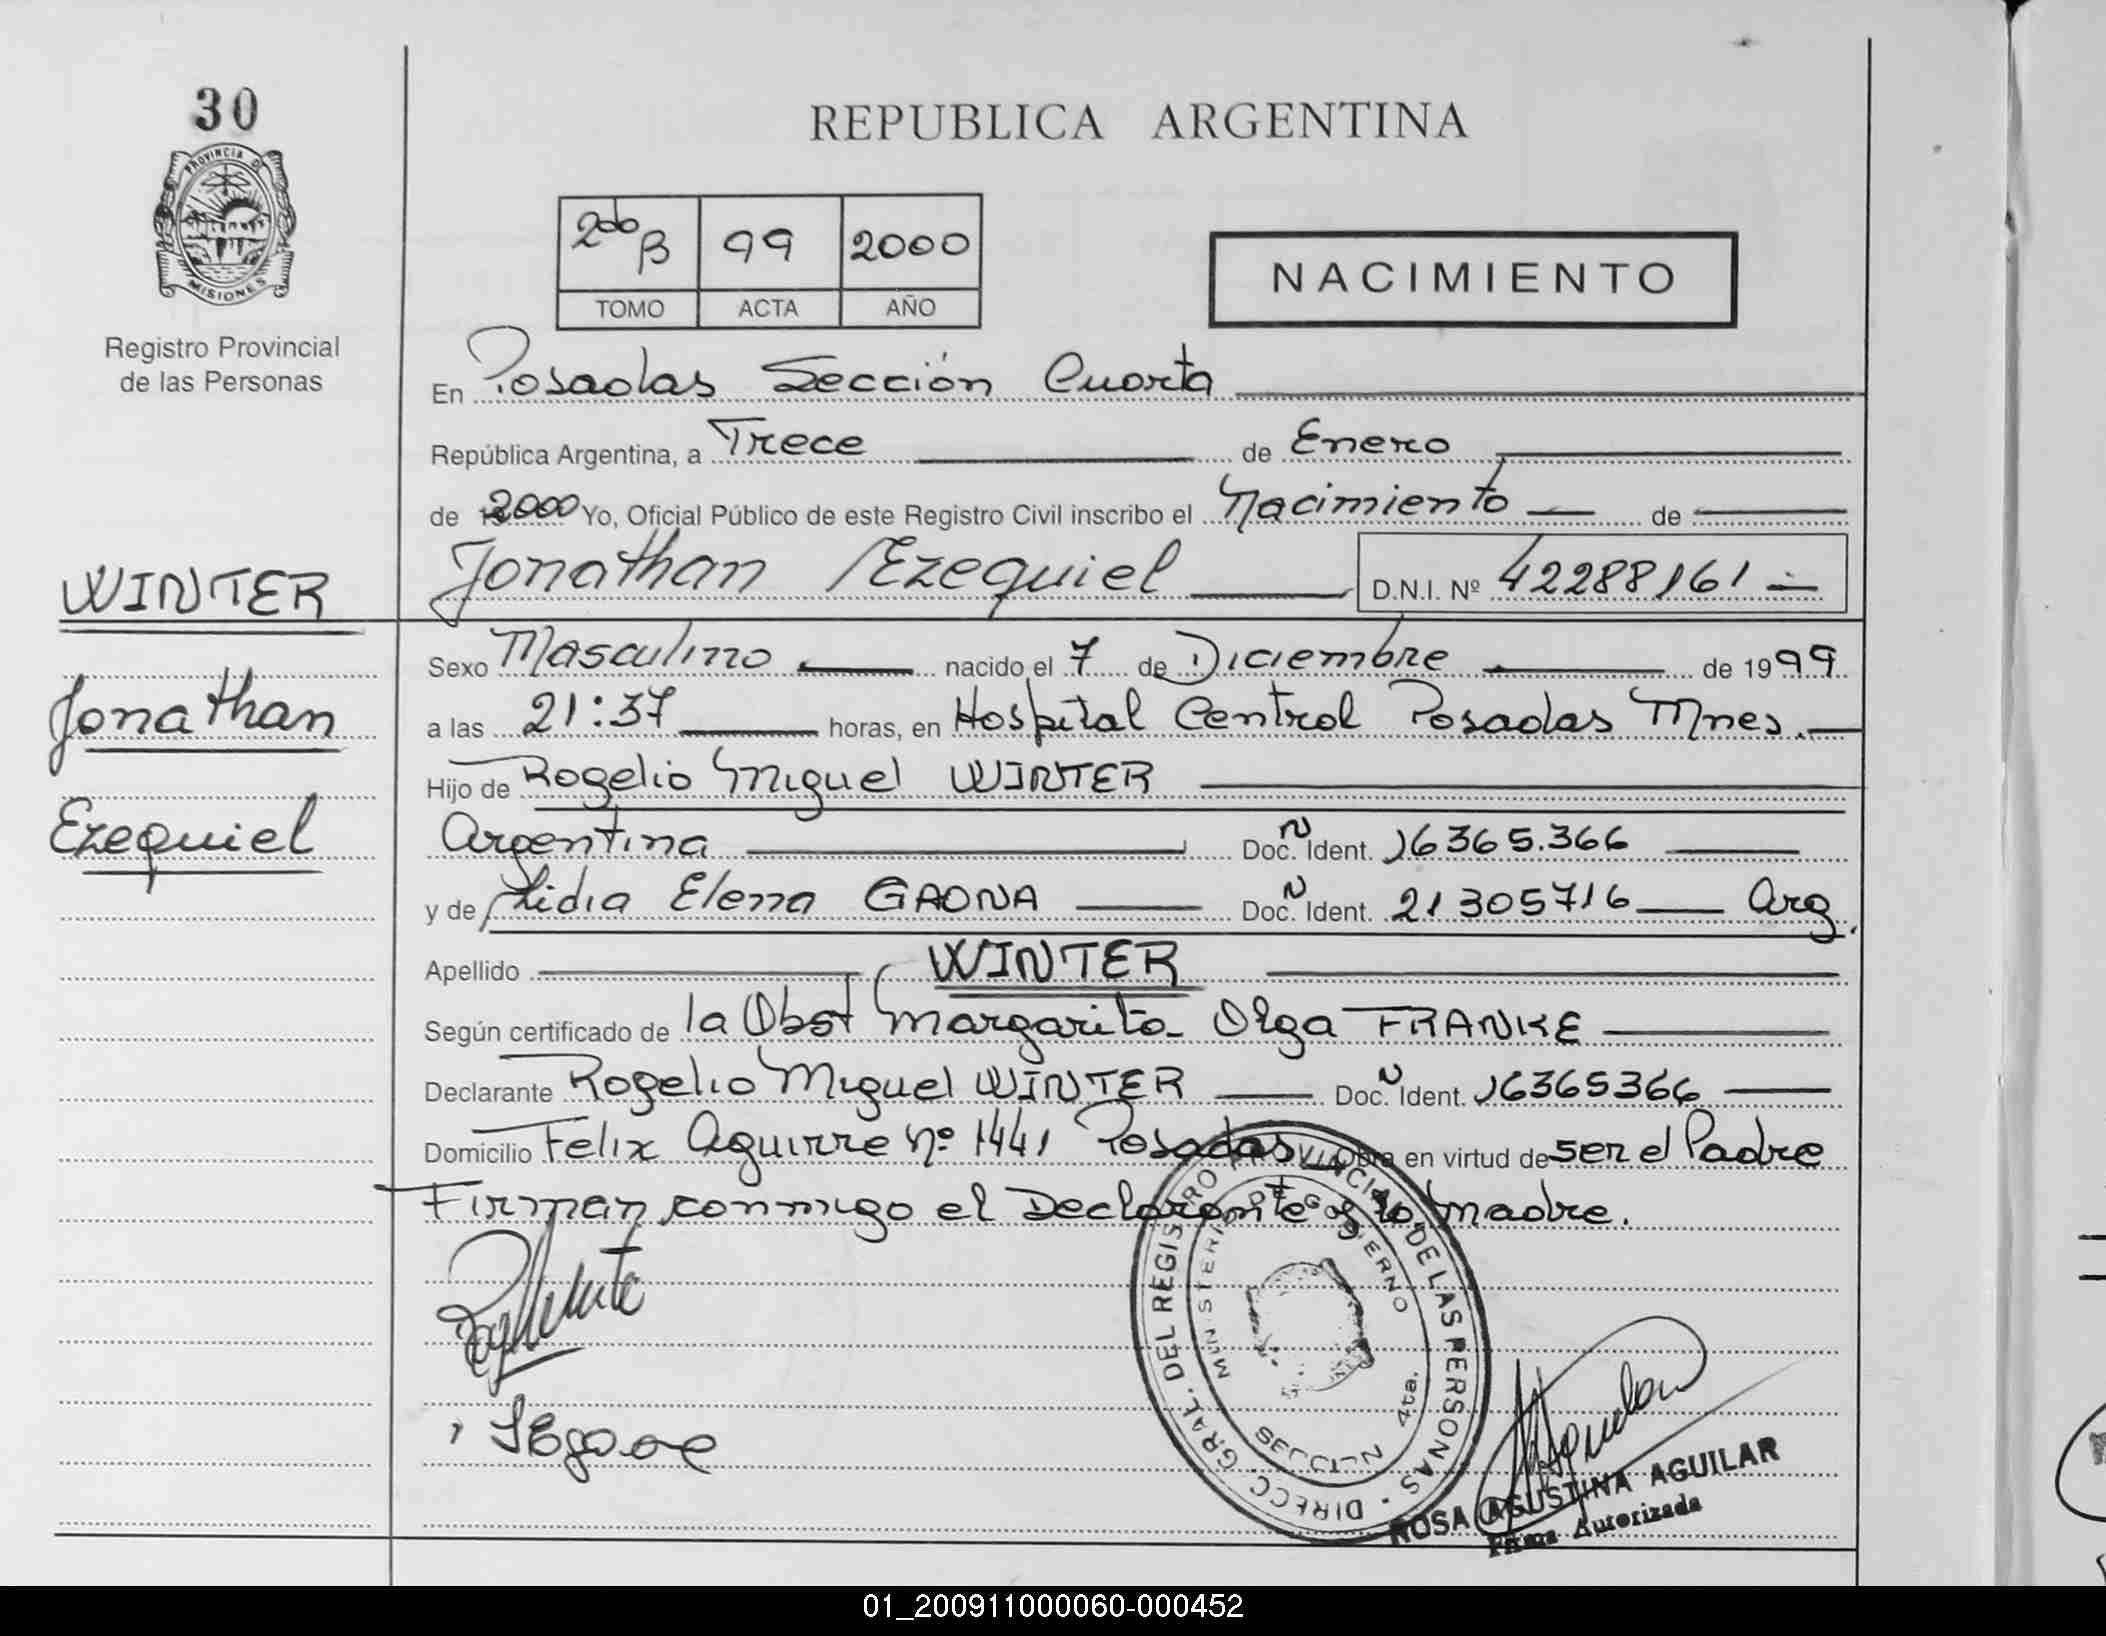 30
PROVINCIA D
MISIONES
Registro Provincial
de las Personas
WINTER
Jonathan
Ezequiel
REPUBLICA ARGENTINA
2do B 99 2000
TOMO ACTA AÑO
NACIMIENTO
En Posadas Sección Cuarta
República Argentina, a Trece de Enero
de 2000 Yo, Oficial Público de este Registro Civil inscribo el Nacimiento de
Jonathan Ezequiel D.N.I. Nº 42288161
Sexo Masculino nacido el 7 de Diciembre de 1999
a las 21:37 horas, en Hospital Central Posadas Mnes.
Hijo de Rogelio Miguel WINTER
Argentina Doc. N Ident. 16365.366
y de Lidia Elena GAONA Doc. N Ident. 21305716 Arg.
Apellido WINTER
Según certificado de la Obst Margarita Olga FRANKE
Declarante Rogelio Miguel WINTER Doc. N Ident. 16365366
Domicilio Felix Aguirre Nº 1441 Posadas Obra en virtud de ser el Padre
Firman conmigo el Declarante y la madre.
DIRECC. GRAL. DEL REGISTRO PROVINCIAL DE LAS PERSONAS
MINISTERIO DE GOBIERNO
SECCION 4ta.
ROSA AGUSTINA AGUILAR
Firma Autorizada
01_200911000060-000452